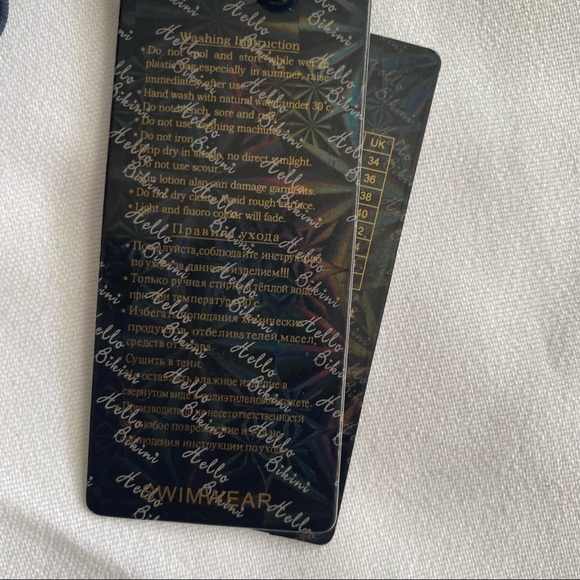 Washing Instruction
• Do not rool and store while wet in
plastic bag especially in summer, raise
immediately after use.
• Hand wash with natural water under 30°c.
• Do not , sore and
Do not use washing machine
• Do not iron.
Drip dry in shade, no direct sunlight.
Do not use scour.
Sun lotion also can damage garments.
• Do not dry clean. Avoid rough surface.
• Light and fluoro colour will fade.
Правила ухода
• Пожалуйста,соблюдайте инструкцию
по уходу за данным изделием!!!
• Только ручная стирка в тёплой воде
при температуре
• Избегать попадания химических
продуктов, отбеливателей,масел,
средств от загара.
Сушить в тени.
Не оставлять влажное изделие в
свернутом виде в полиэтиленовом пакете.
Производитель не несет ответственности
за любое повреждение из-за не
соблюдения инструкции по уходу
SWIMWEAR
Hello Bikini
UK
34
36
38
40